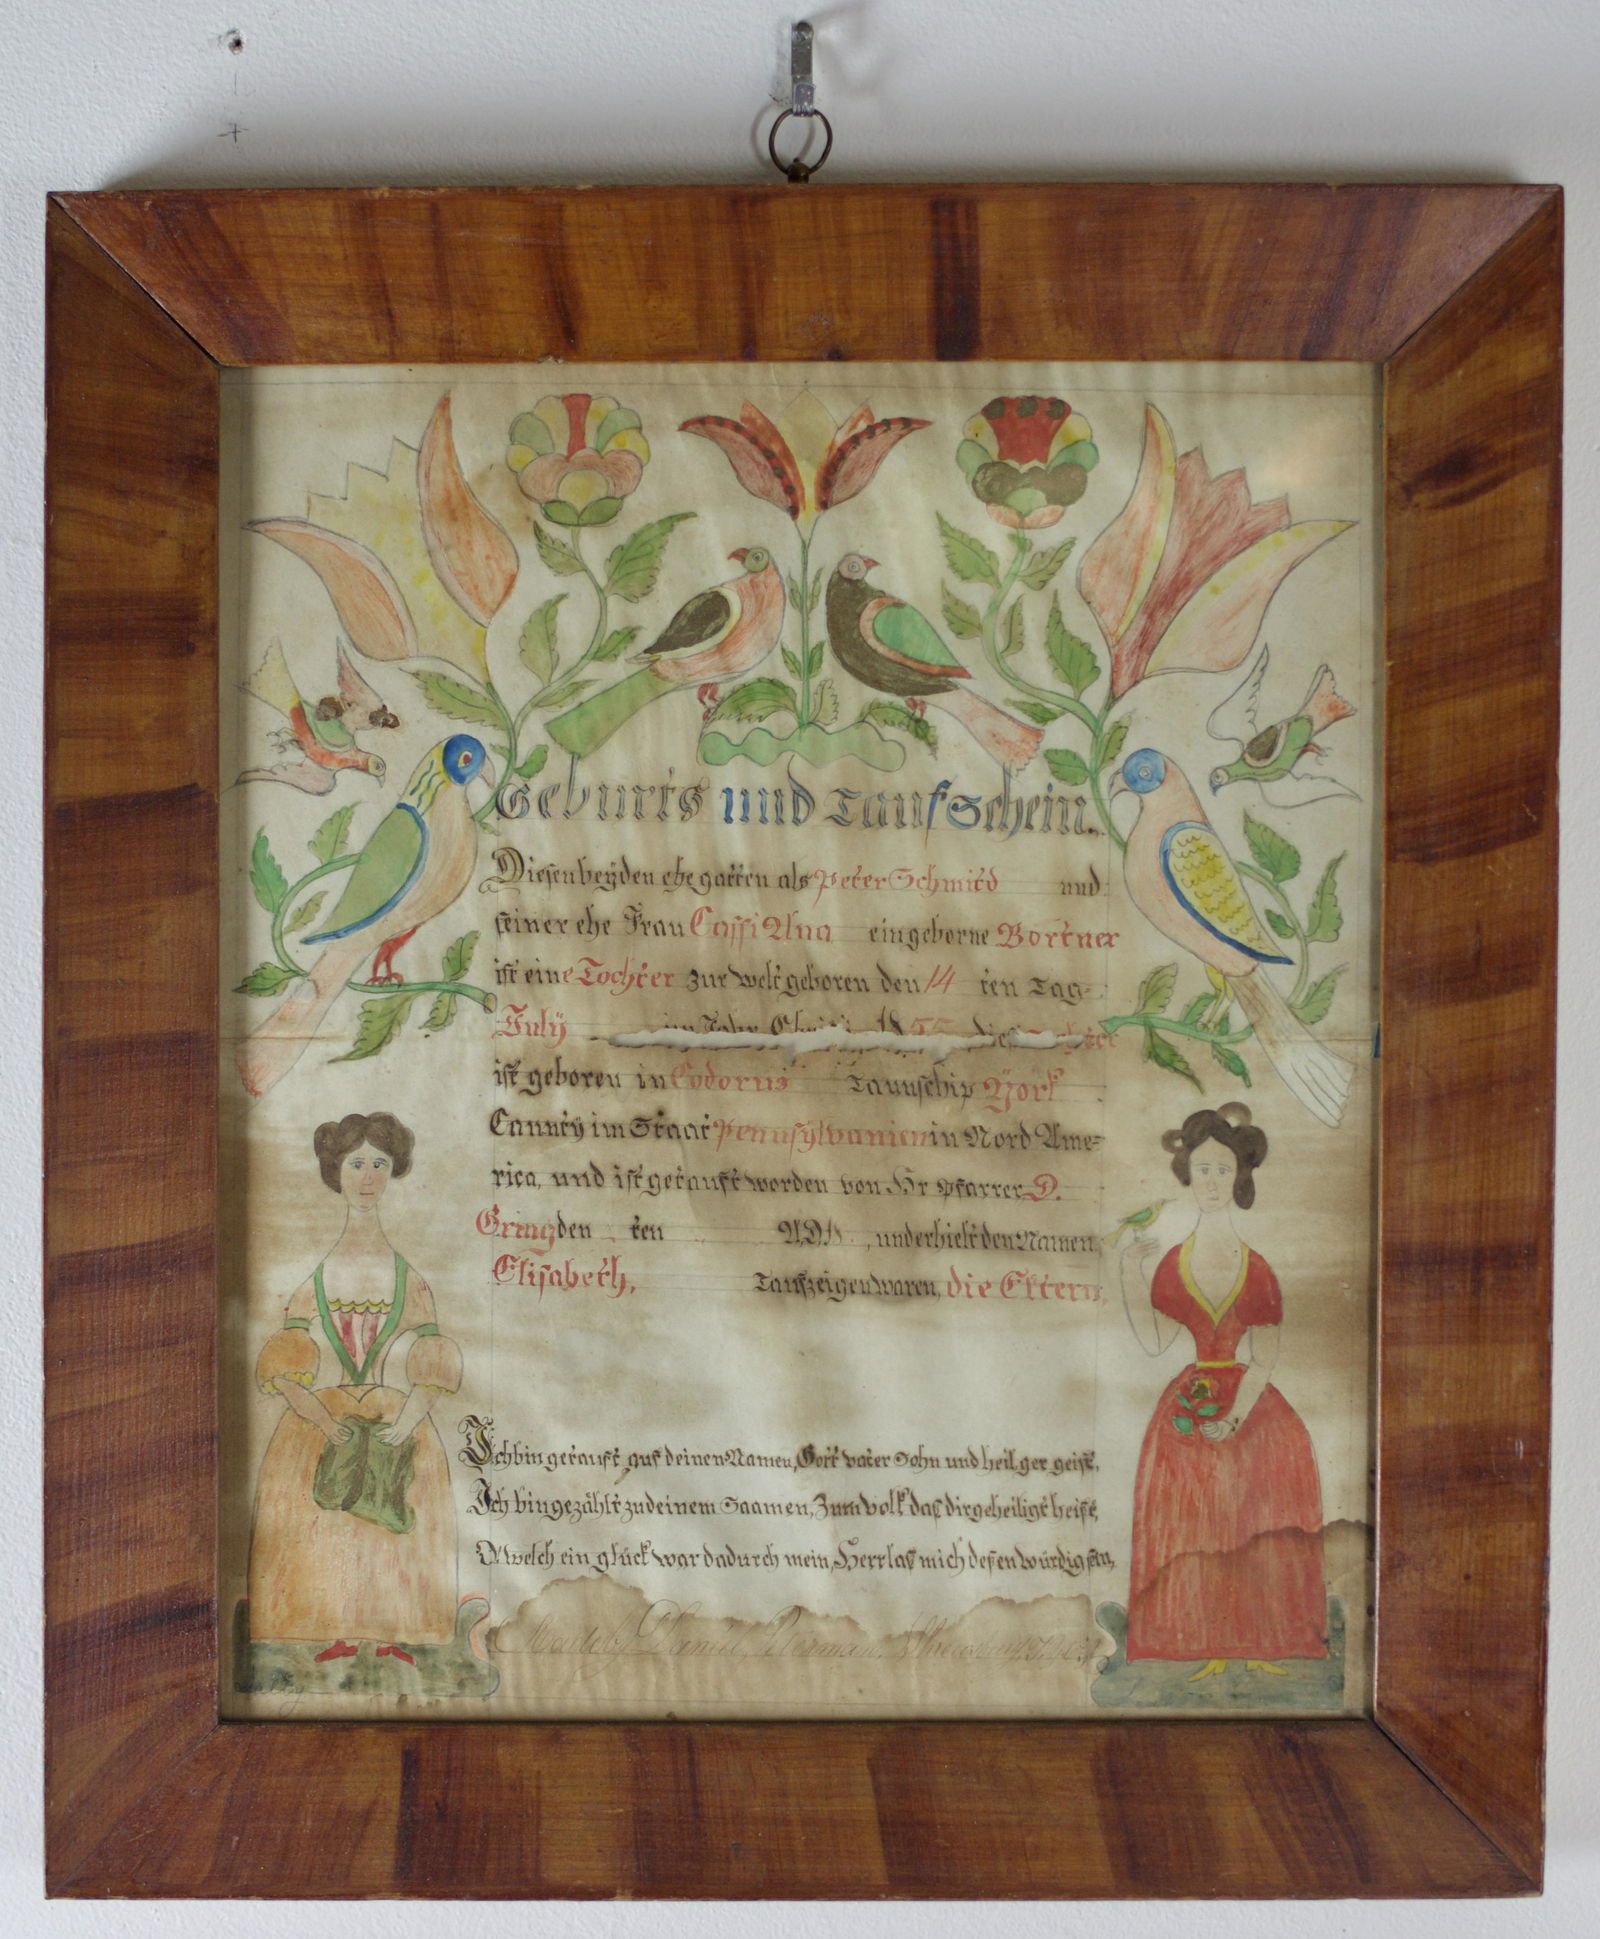 Geburts und Taufschein.
Diesen beyden ehegatten als Peter Schmitd und
seiner ehe Frau Cassi Ana eingeborne Bortner
ist eine Tochter zur welt geboren den 14 ten Tag
July im Jahr Christi 1855 diese
ist geboren in Codorus Taunschip York
Caunty im Staat Pennsylvanien in Nord Ame=
rica, und ist getauft worden von Hr Pfarrer D.
Gring den ten AD 18 , und erhielt den Namen
Elisabeth, Taufzeigen waren, die Eltern,
Ich bin getauft auf deinen Namen, Gott vater Sohn und heilger geist,
Ich bin gezählt zu deinem Saamen, Zum volk das dir geheiligt heist,
O welch ein glück war dadurch mein, Herr las mich desen würdig sein,
Made by Daniel Peterman, Shrewsbury